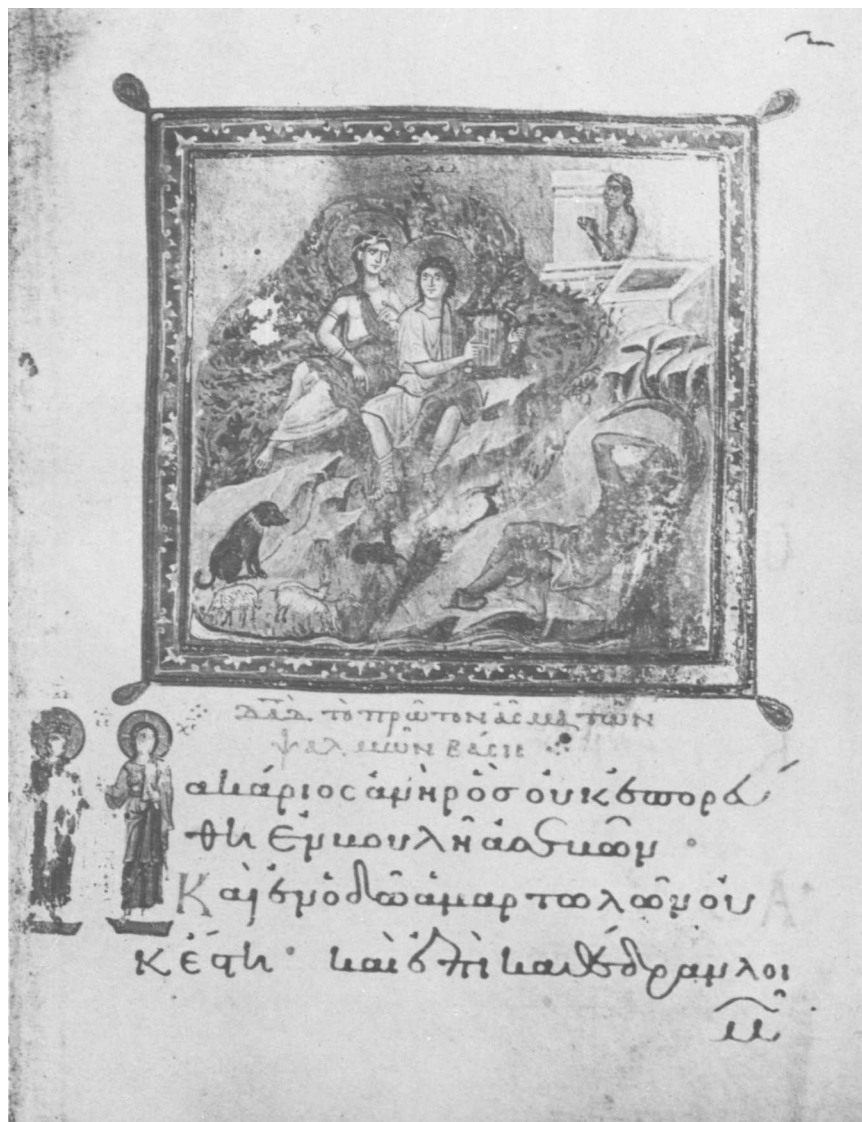 Δᾱδ τὸ πρῶτον ἆσμα τῶν
ψαλμῶν
ακάριος ἀνὴρ ὃς οὐκ ἐπορεύ
θη ἐν βουλῆ ἀσεβῶν ·
Καὶ ἐν ὁδῶ ἁμαρτωλῶν οὐ
κ ἔστη · καὶ ἐπὶ καθέδραν λοι